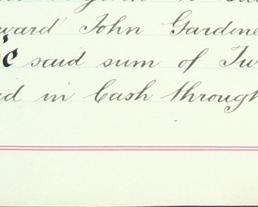 ward John Gardine
said sum of Tw
d in Cash through